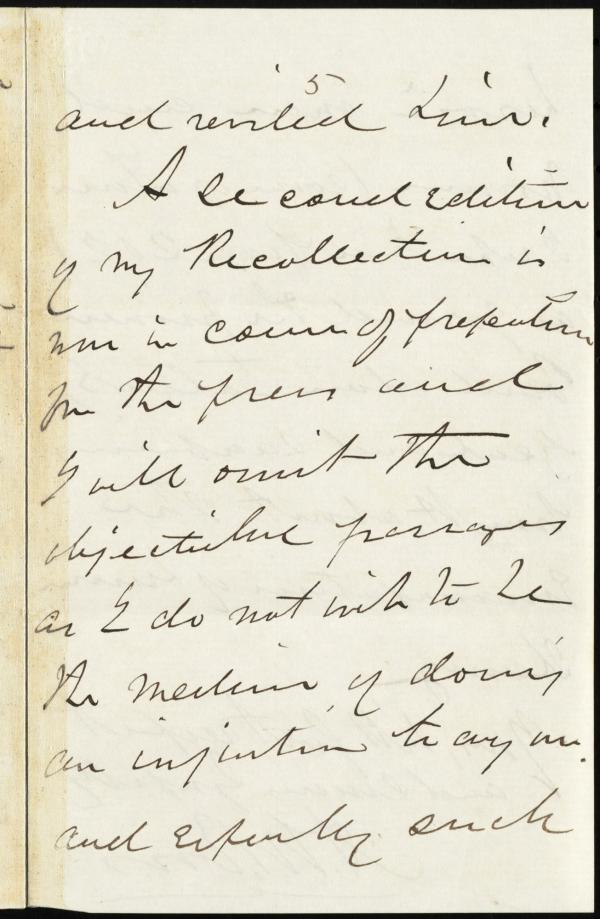 5
and reviled him.
A second edition
of my Recollection is
now in course of prepration
for the press and
I will omit the
objectible passages
as I do not wish to be
the medium of doing
an injustice to any one.
and especially such